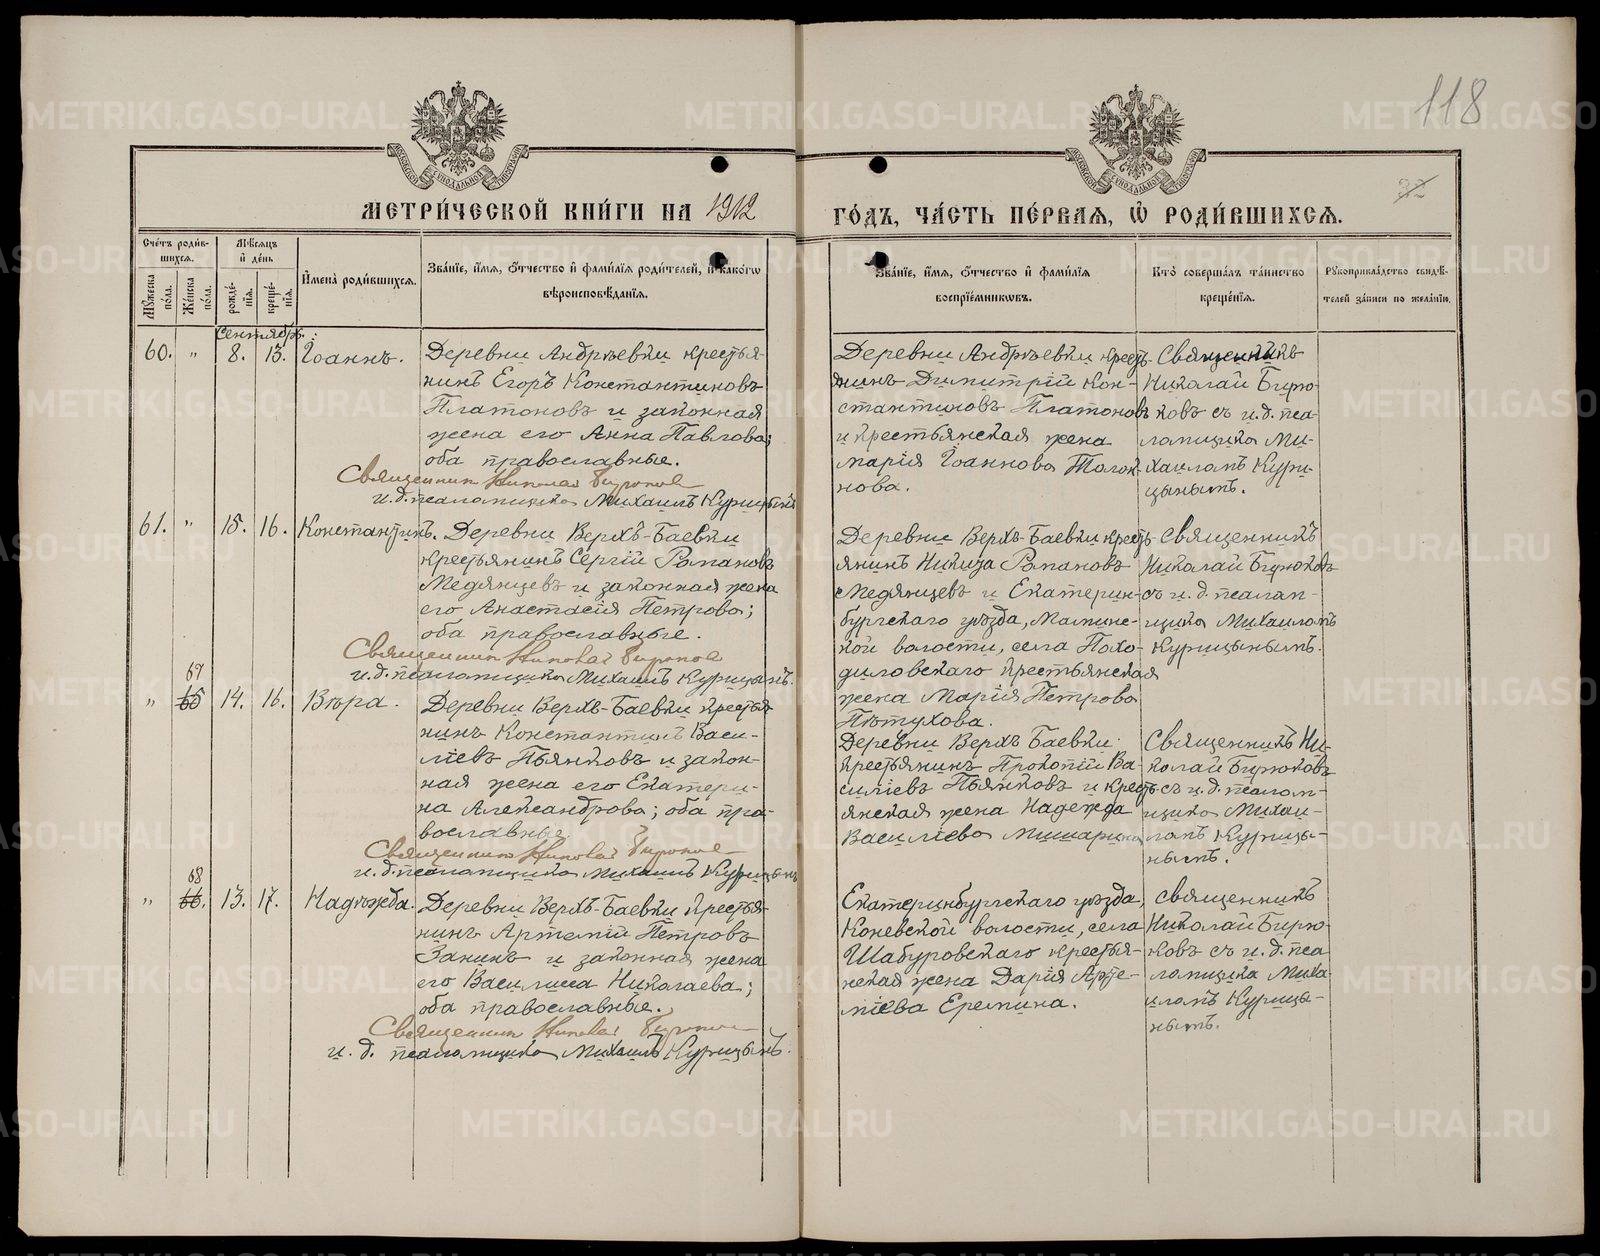 118
32
МЕТРИ́ЧЕСКОЙ КНИ́ГИ НА 1912
ГО́ДЪ, ЧА́СТЬ ПЕ́РВАЯ, Ѡ҆ РОДИ́ВШИХСЯ.
Сче́тъ роди́в-
шихся.
Мꙋ́жеска по́ла.
Же́нска по́ла.
Мѣ́сяцъ
и҆ де́нь
рожде́-
нїя.
креще́-
нїя.
И҆мена̀ роди́вшихся.
Зва́нїе, и҆́мя, ѻ҆́тчество и҆ фами́лїя роди́телей, и҆ како́гѡ
вѣроисповѣ́данїя.
Зва́нїе, и҆́мя, ѻ҆́тчество и҆ фами́лїя
воспрїе́мниковъ.
Кто̀ соверша́лъ та́инство
креще́нїя.
Рꙋкоприкла́дство свидѣ́-
телей за́писи по жела́нїю.
Сентябрь:
60. " 8. 13. Іоаннъ.
Деревни Андрѣевки крестья-
нинъ Егоръ Константиновъ
Платоновъ и законная
жена его Анна Павлова;
оба православные.
Священник Николай Бирюков
и. д. псаломщика Михаилъ Курицынъ
Деревни Андрѣевки кресть-
янинъ Димитрій Кон-
стантиновъ Платоновъ
и крестьянская жена
Марія Іоаннова Толок-
нова.
Священникъ
Николай Бирю-
ковъ съ и. д. пса-
ломщика Ми-
хаиломъ Кури-
цынымъ.
61. " 15. 16. Константинъ.
Деревни Верхъ-Баевки
крестьянинъ Сергій Романовъ
Медянцевъ и законная жена
его Анастасія Петрова;
оба православные.
Священник Николай Бирюков
и. д. псаломщика Михаилъ Курицынъ.
Деревни Верхъ-Баевки кресть-
янинъ Никита Романовъ
Медянцевъ и Екатерин-
бургскаго уѣзда, Мамин-
кой волости, села Похо-
диловскаго крестьянская
жена Марія Петрова
Пѣтухова.
Священникъ
Николай Бирюковъ
съ и. д. псалом-
щика Михаиломъ
Курицынымъ.
67
" 65 14. 16. Вѣра.
Деревни Верхъ-Баевки крестья
нинъ Константинъ Васи-
ліевъ Пьянковъ и закон-
ная жена его Екатери-
на Александрова; оба пра-
вославные
Священник Николай Бирюков
и. д. псаломщика Михаилъ Курицынъ
Деревни Верхъ Баевки
крестьянинъ Прокопій Ва-
силіевъ Пьянковъ и кресть-
янская жена Надежда
Васильева Мишарина
Священникъ Ни-
колай Бирюковъ
съ и. д. псалом-
щика Михаи-
ломъ Курицы-
нымъ.
68
" 66. 13. 17. Надѣжда.
Деревни Верхъ-Баевки крестья-
нинъ Артемій Петровъ
Занинъ и законная жена
его Василиса Николаева;
оба православные.
Священник Николай Бирюков
и. д. псаломщика Михаилъ Курицынъ.
Екатеринбургскаго уѣзда,
Коневской волости, села
Шабуровскаго крестья-
нская жена Дарія Арте-
міева Еремина.
Священникъ
Николай Бирю-
ковъ съ и. д. пса-
ломщика Миха-
иломъ Курицы-
нымъ.
METRIKI.GASO-URAL.RU